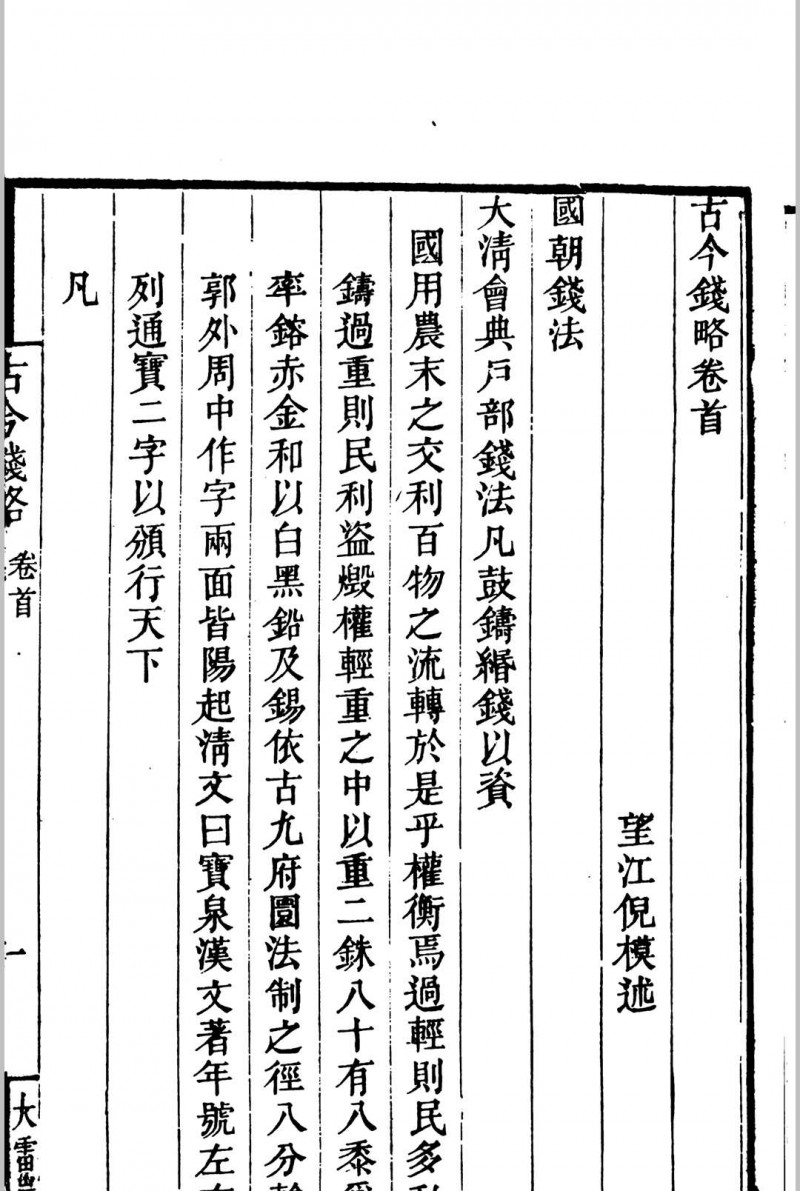 古今錢略卷首
望江倪模述
國朝錢法
大淸會典戸部錢法凡鼓鑄緡錢以資
國用農末之交利百物之流轉於是乎權衡焉過輕則民多私
鑄過重則民利盜燬權輕重之中以重二銖八十有八黍爲
率鎔赤金和以白黑鉛及錫依古九府圜法制之徑八分
郭外周中作字兩面皆陽起淸文曰寶泉漢文著年號左右
列通寶二字以頒行天下
凡
古今錢略
卷首
一
大雷